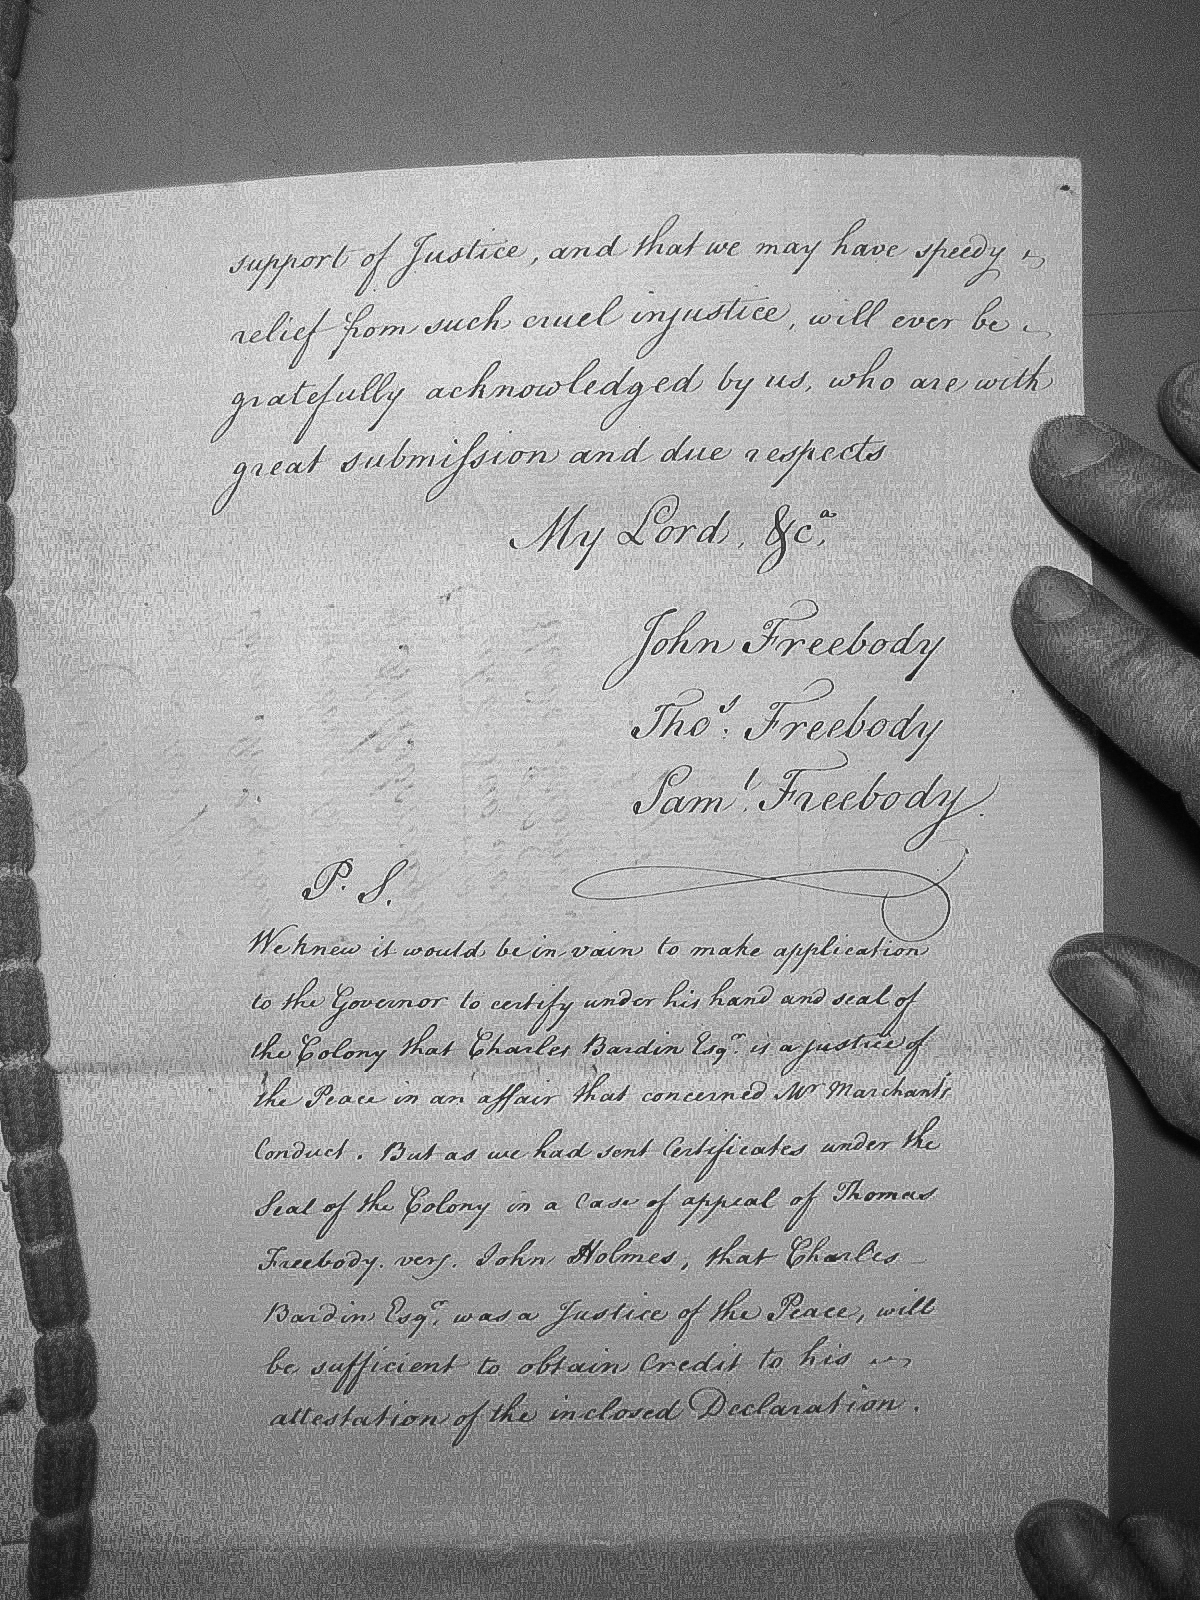 support of Justice, and that we may have speedy
relief from such cruel injustice, will ever be
gratefully acknowledged by us, who are with
great submiſsion and due respects
My Lord, &cᵃ.
John Freebody
Thoˢ. Freebody
Samˡ. Freebody.
P. S.
We knew it would be in vain to make application
to the Governor to certify under his hand and seal of
the Colony that Charles Bardin Esqʳ. is a justice of
the Peace in an affair that concerned Mʳ Marchant's
Conduct. But as we had sent Certificates under the
Seal of the Colony in a Case of appeal of Thomas
Freebody. vers. John Holmes, that Charles
Bardin Esqʳ. was a Justice of the Peace, will
be sufficient to obtain Credit to his
attestation of the inclosed Declaration.